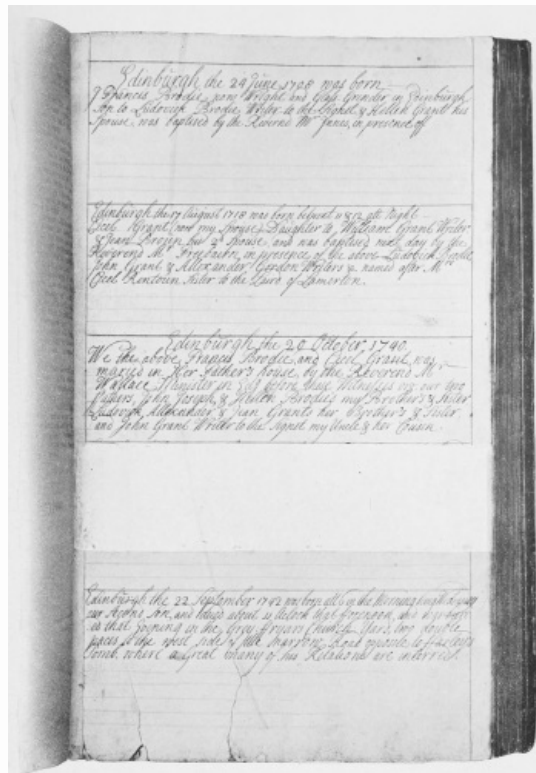 Edinburgh the 24 June 1708 was born
I Francis Brodie, now Wright and Glass Grinder in Edinburgh
Son to Ludovick Brodie Writer to the Signet & Hellen Grant his
Spouse, was baptised by the Reverend Mr Innes, in presence of
Edinburgh the 17 August 1718 was born betwixt 11 & 12 att Night
Cecil Grant now my Spouse, Daughter to William Grant Writer
& Jean his 2d Spouse, and was baptised next day by the
Reverend Mr Freebairn, in presence of the above Ludovick Brodie
John Grant & Allexander Gordon Writers & named after Mrs
Cicel Rentoun Sister to the Laird of Lamerton.
Edinburgh the 20 October 1740
We the above Francis Brodie, and Cicel Grant, was
maried in Her Father's house, by the Reverend Mr
Wallace Minister in Edr before thse Witnesses viz. our two
Fathers, John Joseph, & Hellen Brodies my Brother's & Sister
Ludovick Allexander & Jean Grants her Brother's & Sister
and John Grant Writer to the Signet my Uncle & her Cousin.
Edinburgh the 22 September 1742 was born att 6 in the Morning
our second Son, and about 11 a'clock that forenoon, and
is that joining in the Gray-fryars Church Yard, two double
paces to the west side of the narrow road oposite to
Tomb, where a Great many of his Relations are interred.